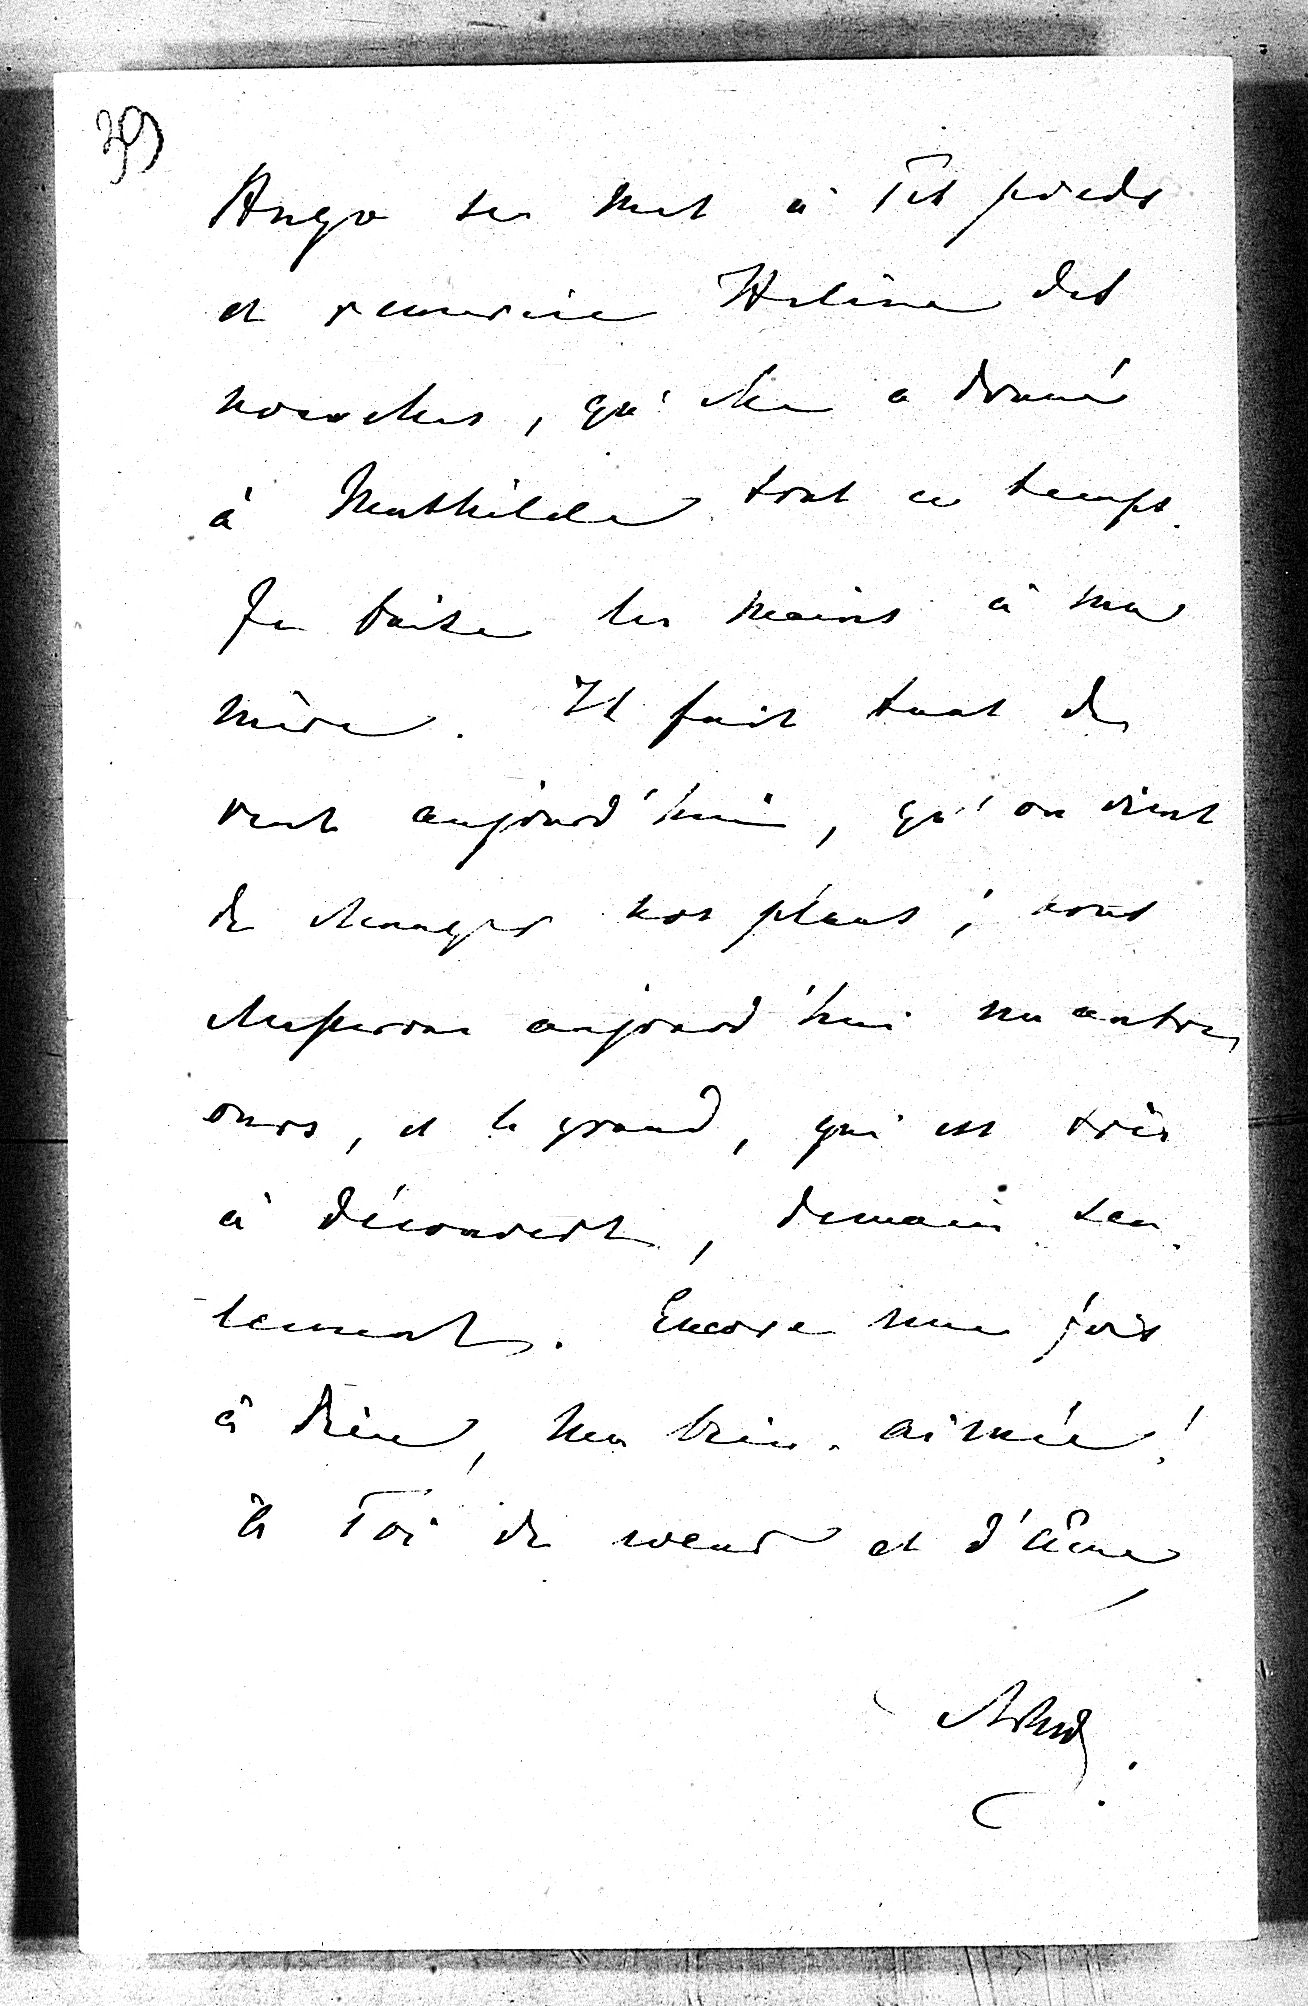 39
Hugo se met à Tes pieds
et remercie Hélène des
nouvelles, qu'elle a donné
à Mathilde tout ce temps.
Je baise les mains à ma
mère. Il fait tant de
vent aujourd'hui, qu'on vient
de changer nos plans; nous
chasserons aujourd'hui un autre
ours, et le grand, qui est très
à découvert, demain seu-
lement. Encore une fois
à Dieu, ma bien-aimée!
à Toi de coeur et d'âme,